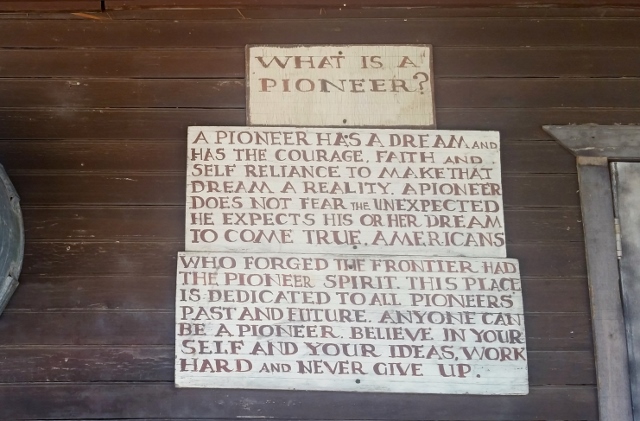 WHAT IS A
PIONEER?
A PIONEER HAS A DREAM AND
HAS THE COURAGE, FAITH AND
SELF RELIANCE TO MAKE THAT
DREAM A REALITY. A PIONEER
DOES NOT FEAR THE UNEXPECTED
HE EXPECTS HIS OR HER DREAM
TO COME TRUE. AMERICANS
WHO FORGED THE FRONTIER HAD
THE PIONEER SPIRIT. THIS PLACE
IS DEDICATED TO ALL PIONEERS
PAST AND FUTURE. ANYONE CAN
BE A PIONEER. BELIEVE IN YOUR
SELF AND YOUR IDEAS, WORK
HARD AND NEVER GIVE UP.